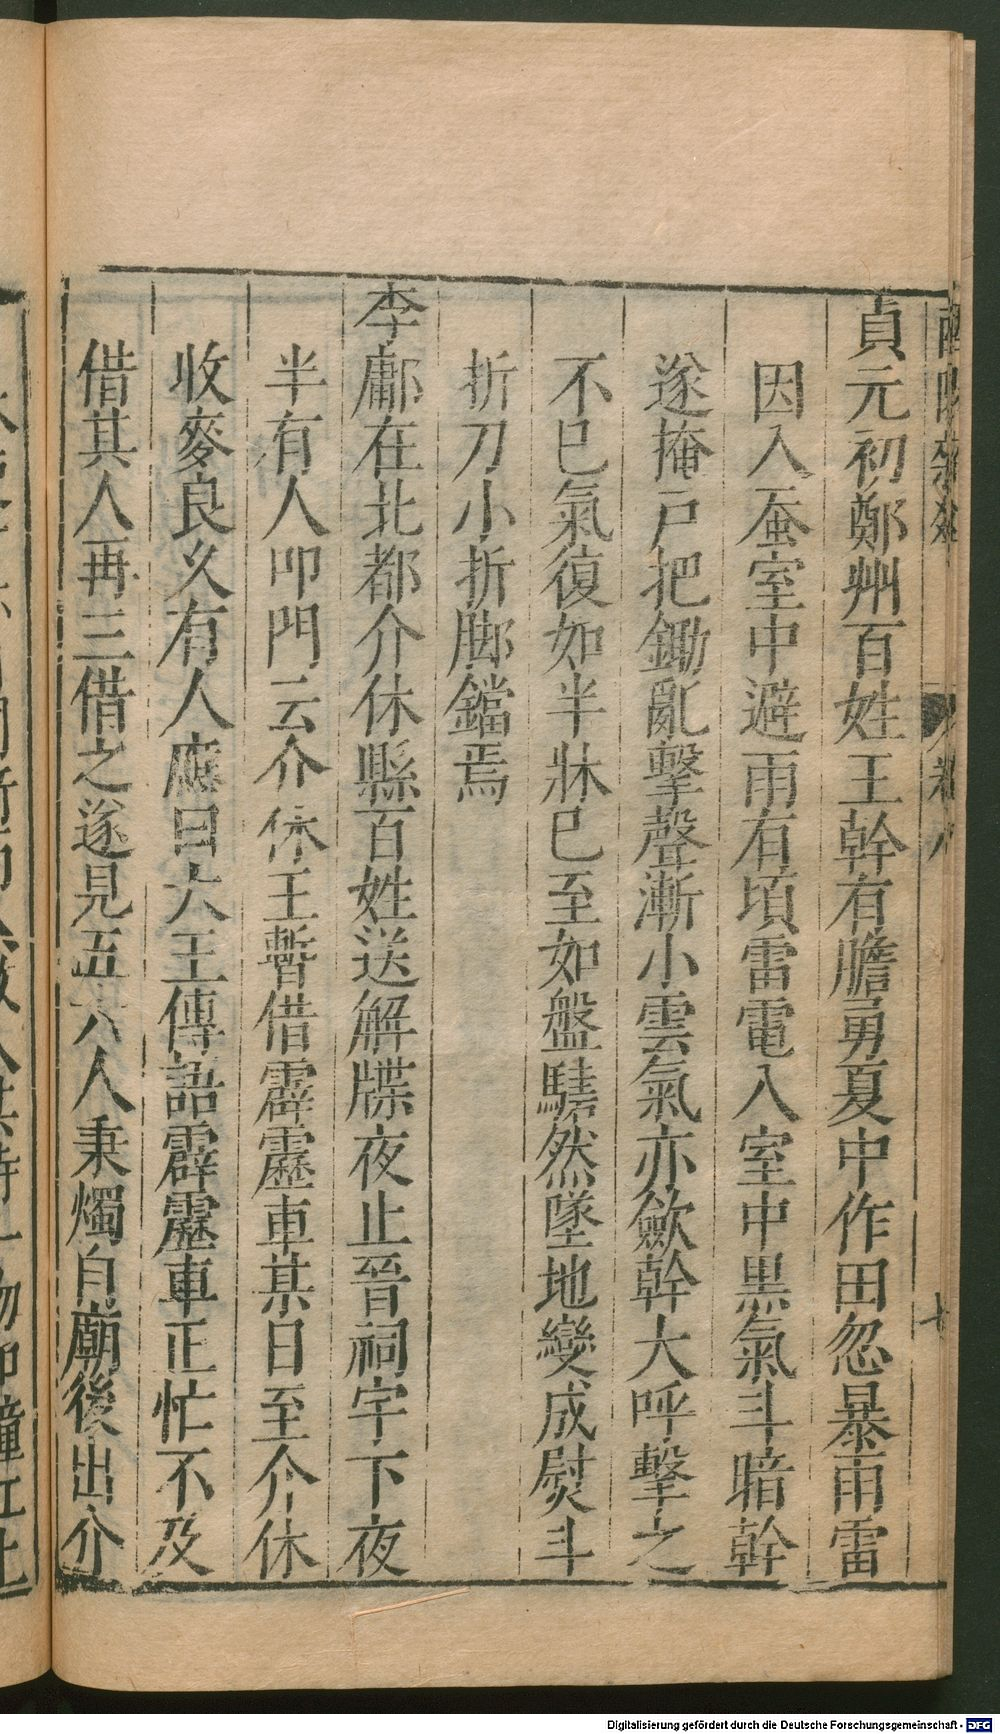 貞元初鄭州百姓王幹有膽勇夏中作田忽暴雨雷
因入蚕室中避雨有頃雷電入室中黒氣斗暗幹
遂掩戸把鋤亂擊聲漸小雲氣亦歛幹大呼擊之
不已氣復如半牀已至如盤驍然墜地變成熨斗
折刀小折脚鐺焉
李鄘在北都介休縣百姓送解牒夜止晉祠宇下夜
半有人叩門云介休王暫借霹靂車某日至介休
收麥良久有人應曰大王傳語霹靂車正忙不及
借其人再三借之遂見五六人秉燭自廟後出介
Digitalisierung gefördert durch die Deutsche Forschungsgemeinschaft - DFG